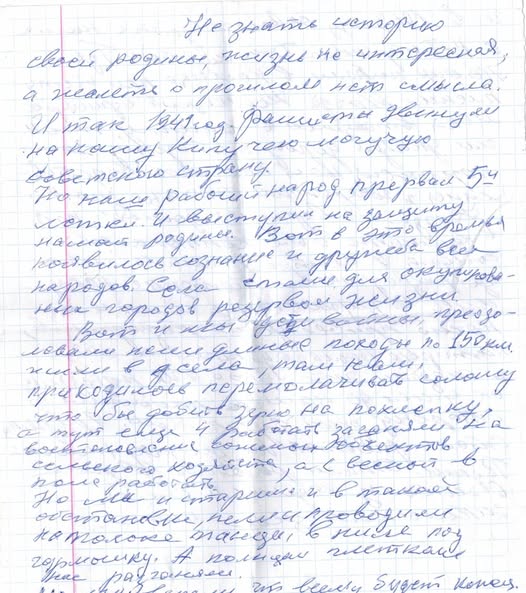 Не знать историю
своей родины, жизнь не интересная,
а жалеть о прошлом нет смысла.
И так 1941 год. Фашисты двинули
на нашу Кипучею могучую
Советскую страну.
Но наш рабочий народ прервал 5й
и выступил на защиту
нашей родины. Вот в это время
появилось сознание и дружба всех
народов. Села стали для окупирова-
ных городов резервом жизни
Вот и мы дети войны преодо-
левали пешие длиные походы по 150 км.
в села, там нам
приходилось перемолачивать солому
что бы добыть зерно на похлебку,
а тут еще и работать загоняли на
востоновление объектов
сельского хозяйства, а с весной в
поле работать
Но мы и старшие и в такой
обстановке, пели и проводили
на толоке танцы, в низе под
гармошку. А полицаи плетками
нас разганяли.
что всему будет конец.